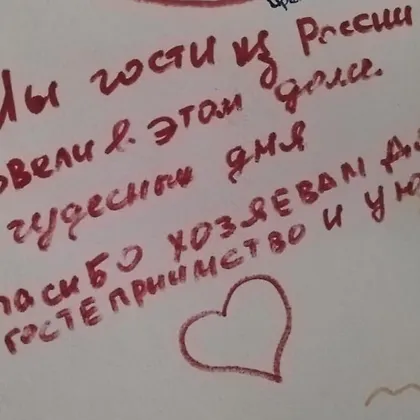 Мы гости из России
овели в этом доме.
чудесных дня
пасибо хозяевам
гостеприимство и ую